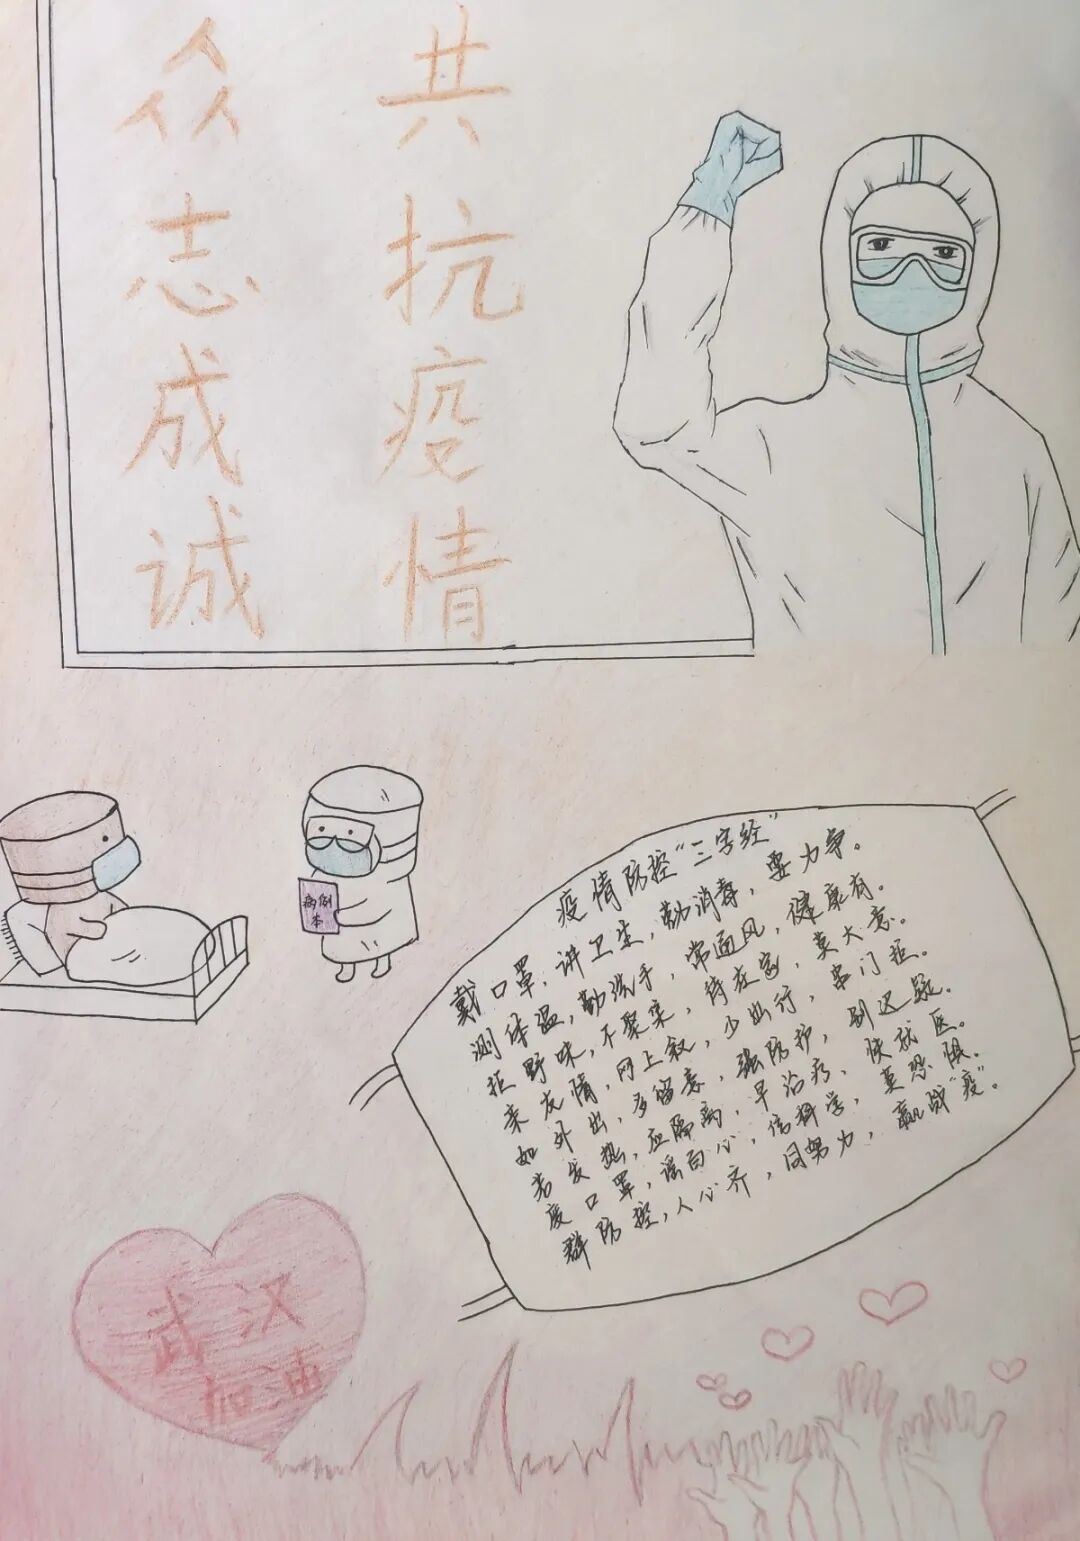 众志成诚
共抗疫情
病例
本
疫情防控“三字经”
戴口罩，讲卫生，勤消毒，要力争。
测体温，勤洗手，常通风，健康有。
拒野味，不聚集，待在家，莫大意。
亲友情，网上叙，少出行，串门拒。
如外出，多留意，强防护，别迟疑。
若发热，应隔离，早治疗，快就医。
废口罩，谣白心，信科学，莫恐惧。
群防控，人心齐，同努力，赢战“疫”。
武汉
加油